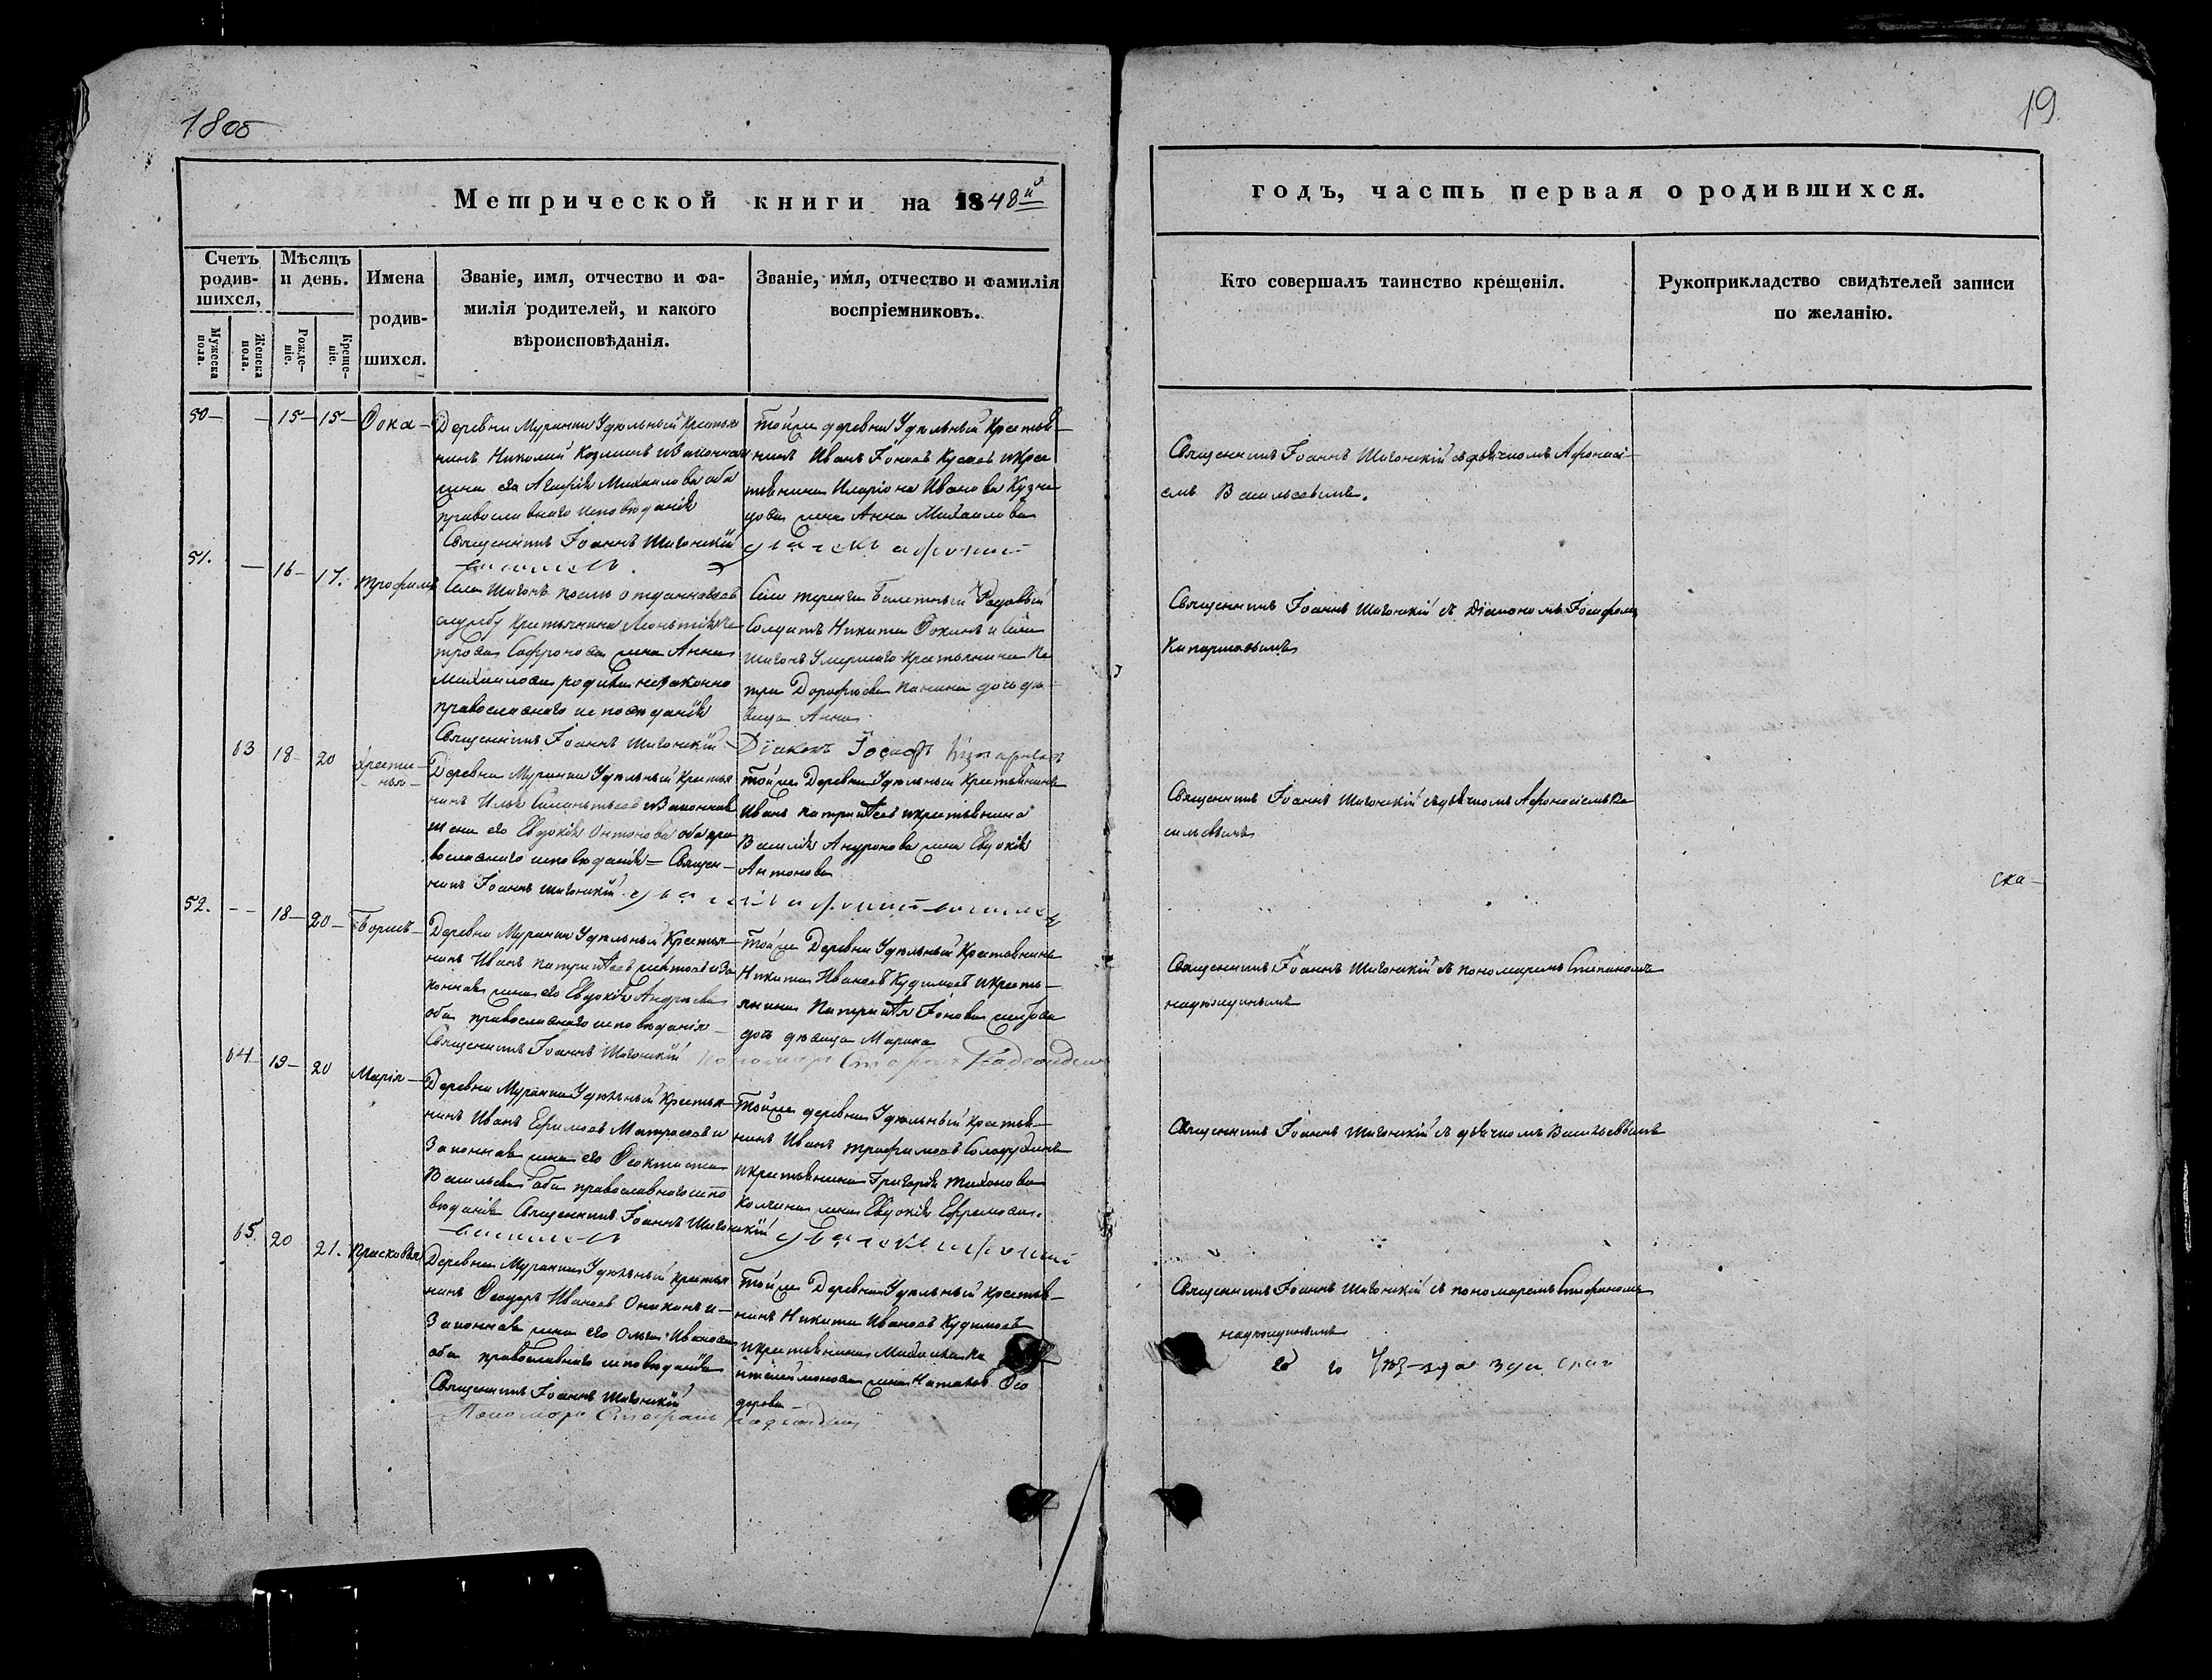 1800
19.
Метрической книги на 1848й
годъ, часть первая о родившихся.
Счетъ родив-шихся,
Мужеска пола.
Женска пола.
Мѣсяцъ и день.
Рожде-ніе.
Креще-ніе.
Имена родив-шихся.
Званіе, имя, отчество и фа-
милія родителей, и какого
вѣроисповѣданія.
Званіе, имя, отчество и фамилія
воспріемниковъ.
Кто совершалъ таинство крещенія.
Рукоприкладство свидѣтелей записи
по желанію.
50 — — 15 — 15 — Фока —
Деревни Муранки Удѣльный Крестья
нинъ Николай Козминъ и законная
жена его Агафія Михаилова оба
православнаго исповѣданія
Священникъ Іоаннъ Шигонскій
Тойже деревни Удѣльный Крестья—
нинъ Иванъ Іоновъ и крес
тьянина Иларіона Иванова Кузне
цова жена Анна Михаилова
Священникъ Іоаннъ Шигонскій съ дьячкомъ Афонасі-
емъ Васильевымъ.
51. — 16 — 17. Трофимъ
Села Шигонъ после отданнаго въ
службу Крестьянина Леонтія Пе
трова Сафронова жена Анна
Михаилова родила незаконно
православнаго исповѣданія
Священникъ Іоаннъ Шигонскій
Села Билетный Рядовый
Солдатъ Никита Фокинъ и Села
Шигонъ Умершаго Крестьянина Пе
тра Дорофѣева Панина дочь дѣ
вица Анна
Діаконъ Іосафъ Кипарисовъ
Священникъ Іоаннъ Шигонскій съ Діакономъ Іосафомъ
Кипарисовымъ
63 18 — 20 Христи—
нья —
Деревни Муранки Удѣльный Крестья
нинъ Илья и законная
жена его Евдокія Антонова оба пра
вославнаго исповѣданія — Священ—
никъ Іоаннъ Шигонскій
Тойже Деревни Удѣльный Крестьянинъ
Иванъ и крестьянина
Василія Андронова жена Евдокія
Антонова
Священникъ Іоаннъ Шигонскій съ дьячкомъ Афонасіемъ Ва
сильевымъ
ска—
52. — — 18 — 20 — Борисъ —
Деревни Муранки Удѣльный Крестья—
нинъ Иванъ и за
конная жена его Евдокія Андреева
оба православнаго исповѣданія —
Священникъ Іоаннъ Шигонскій
Тойже Деревни Удѣльный Крестьянинъ
Никита Ивановъ Кудимовъ и кресть—
янина Іонова
дочь дѣвица Марина
Пономарь Стефанъ Надеждинъ
Священникъ Іоаннъ Шигонскій съ пономаремъ Стефаномъ
Надеждинымъ
64 19 — 20 Марія —
Деревни Муранки Удѣльный Крестья—
нинъ Иванъ Ефимовъ Матросовъ и
Законная жена его Феоктиста
Васильева оба православнаго испо
вѣданія Священникъ Іоаннъ Шигонскій
Тойже деревни Удѣльный Крестья—
нинъ Иванъ Трофимовъ
и крестьянина Григорія Тихонова
жена Евдокія Ефремова.
Священникъ Іоаннъ Шигонскій съ дьячкомъ Васильевымъ
65. 20 21. Прасковья
Деревни Муранки Удѣльный крестья
нинъ Феодоръ Ивановъ и —
Законная жена его Ольга Иванова
оба православнаго исповѣданія
Священникъ Іоаннъ Шигонскій
Пономарь Стефанъ Надеждинъ
Тойже Деревни Удѣльный Крестья—
нинъ Никита Ивановъ Кудимовъ
и крестьянина Михаила
жена Наталья Фео
дорова —
Священникъ Іоаннъ Шигонскій съ пономаремъ Стефаномъ
Надеждинымъ